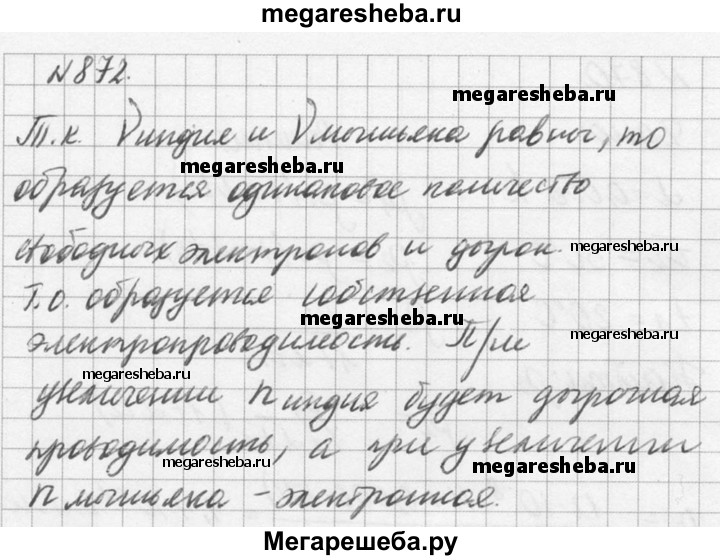 megaresheba.ru
N 872.
megaresheba.ru
Т.к. ν индия и ν мышьяка равны, то
megaresheba.ru
образуется одинаковое количество
свободных электронов и дырок.
megaresheba.ru
Т.о. образуется собственная
megaresheba.ru
электропроводимость. При
megaresheba.ru
megaresheba.ru
увеличении n индия будет дырочная
проводимость, а при увеличении
megaresheba.ru
megaresheba.ru
n мышьяка – электронная.
Мегарешеба.ру